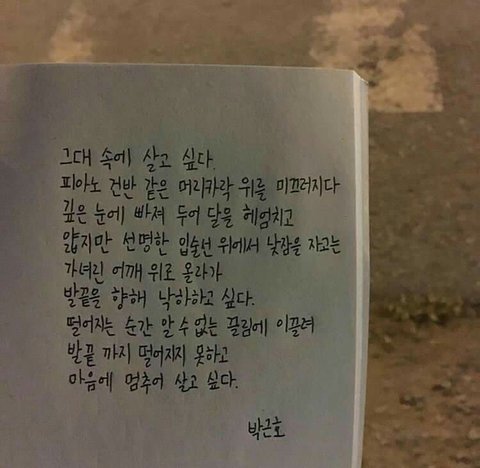 그대 속에 살고 싶다.
피아노 건반 같은 머리카락 위를 미끄러지다
깊은 눈에 빠져 두어 달을 헤엄치고
얇지만 선명한 입술선 위에서 낮잠을 자고는
가녀린 어깨 위로 올라가
발끝을 향해 낙하하고 싶다.
떨어지는 순간 알 수 없는 끌림에 이끌려
발끝 까지 떨어지지 못하고
마음에 멈추어 살고 싶다.
박근호